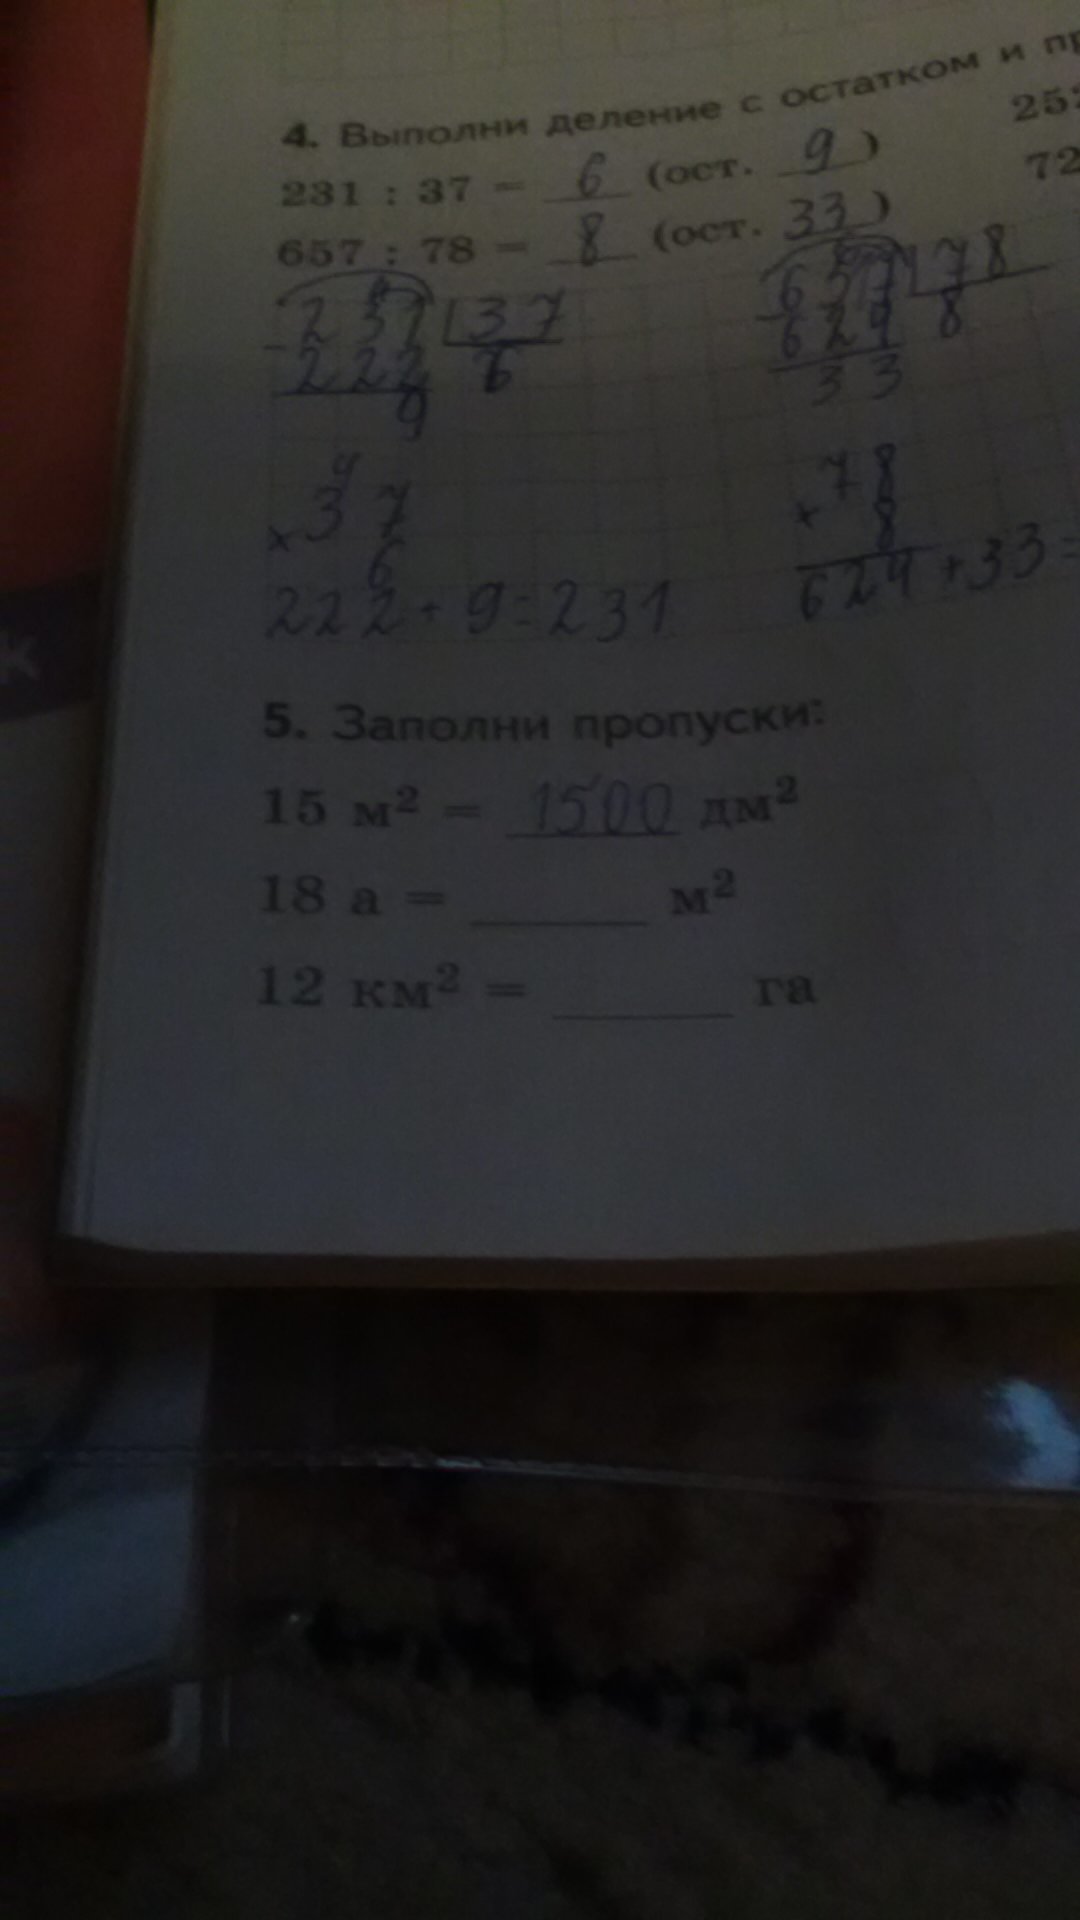 4. Выполни деление с остатком и пр
231 : 37 = 6 (ост. 9)
252
657 : 78 = 8 (ост. 33)
72
231 37
- 222 6
9
657 78
- 624 8
33
4
× 37
6
222 + 9 = 231
× 78
8
624 + 33 =
к
5. Заполни пропуски:
15 м² = 1500 дм²
18 а = ______ м²
12 км² = ______ га